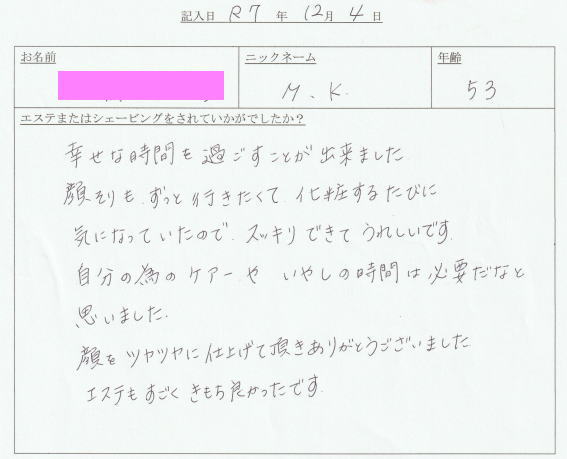 記入日 R7 年 12月 4 日
お名前 ニックネーム 年齢
M.K. 53
エステまたはシェービングをされていかがでしたか？
幸せな時間を過ごすことが出来ました
顔そりも、ずっと行きたくて、化粧するたびに
気になっていたので、スッキリできてうれしいです。
自分の為のケアーや いやしの時間は必要だなと
思いました。
顔をツヤツヤに仕上げて頂きありがとうございました
エステもすごくきもち良かったです。